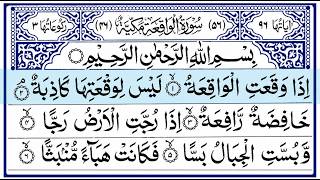 اٰیاتہا ٩٦ (٥٦) سُوْرَةُ الْوَاقِعَةِ مَكِّيَّةٌ (٤٦) رکوعاتہا ٣
بِسْمِ اللّٰهِ الرَّحْمٰنِ الرَّحِيْمِ
اِذَا وَقَعَتِ الْوَاقِعَةُ ۝١ لَيْسَ لِوَقْعَتِهَا كَاذِبَةٌ ۝٢
خَافِضَةٌ رَّافِعَةٌ ۝٣ اِذَا رُجَّتِ الْاَرْضُ رَجًّا ۝٤
وَّ بُسَّتِ الْجِبَالُ بَسًّا ۝٥ فَكَانَتْ هَبَآءً مُّنْۢبَثًّا ۝٦